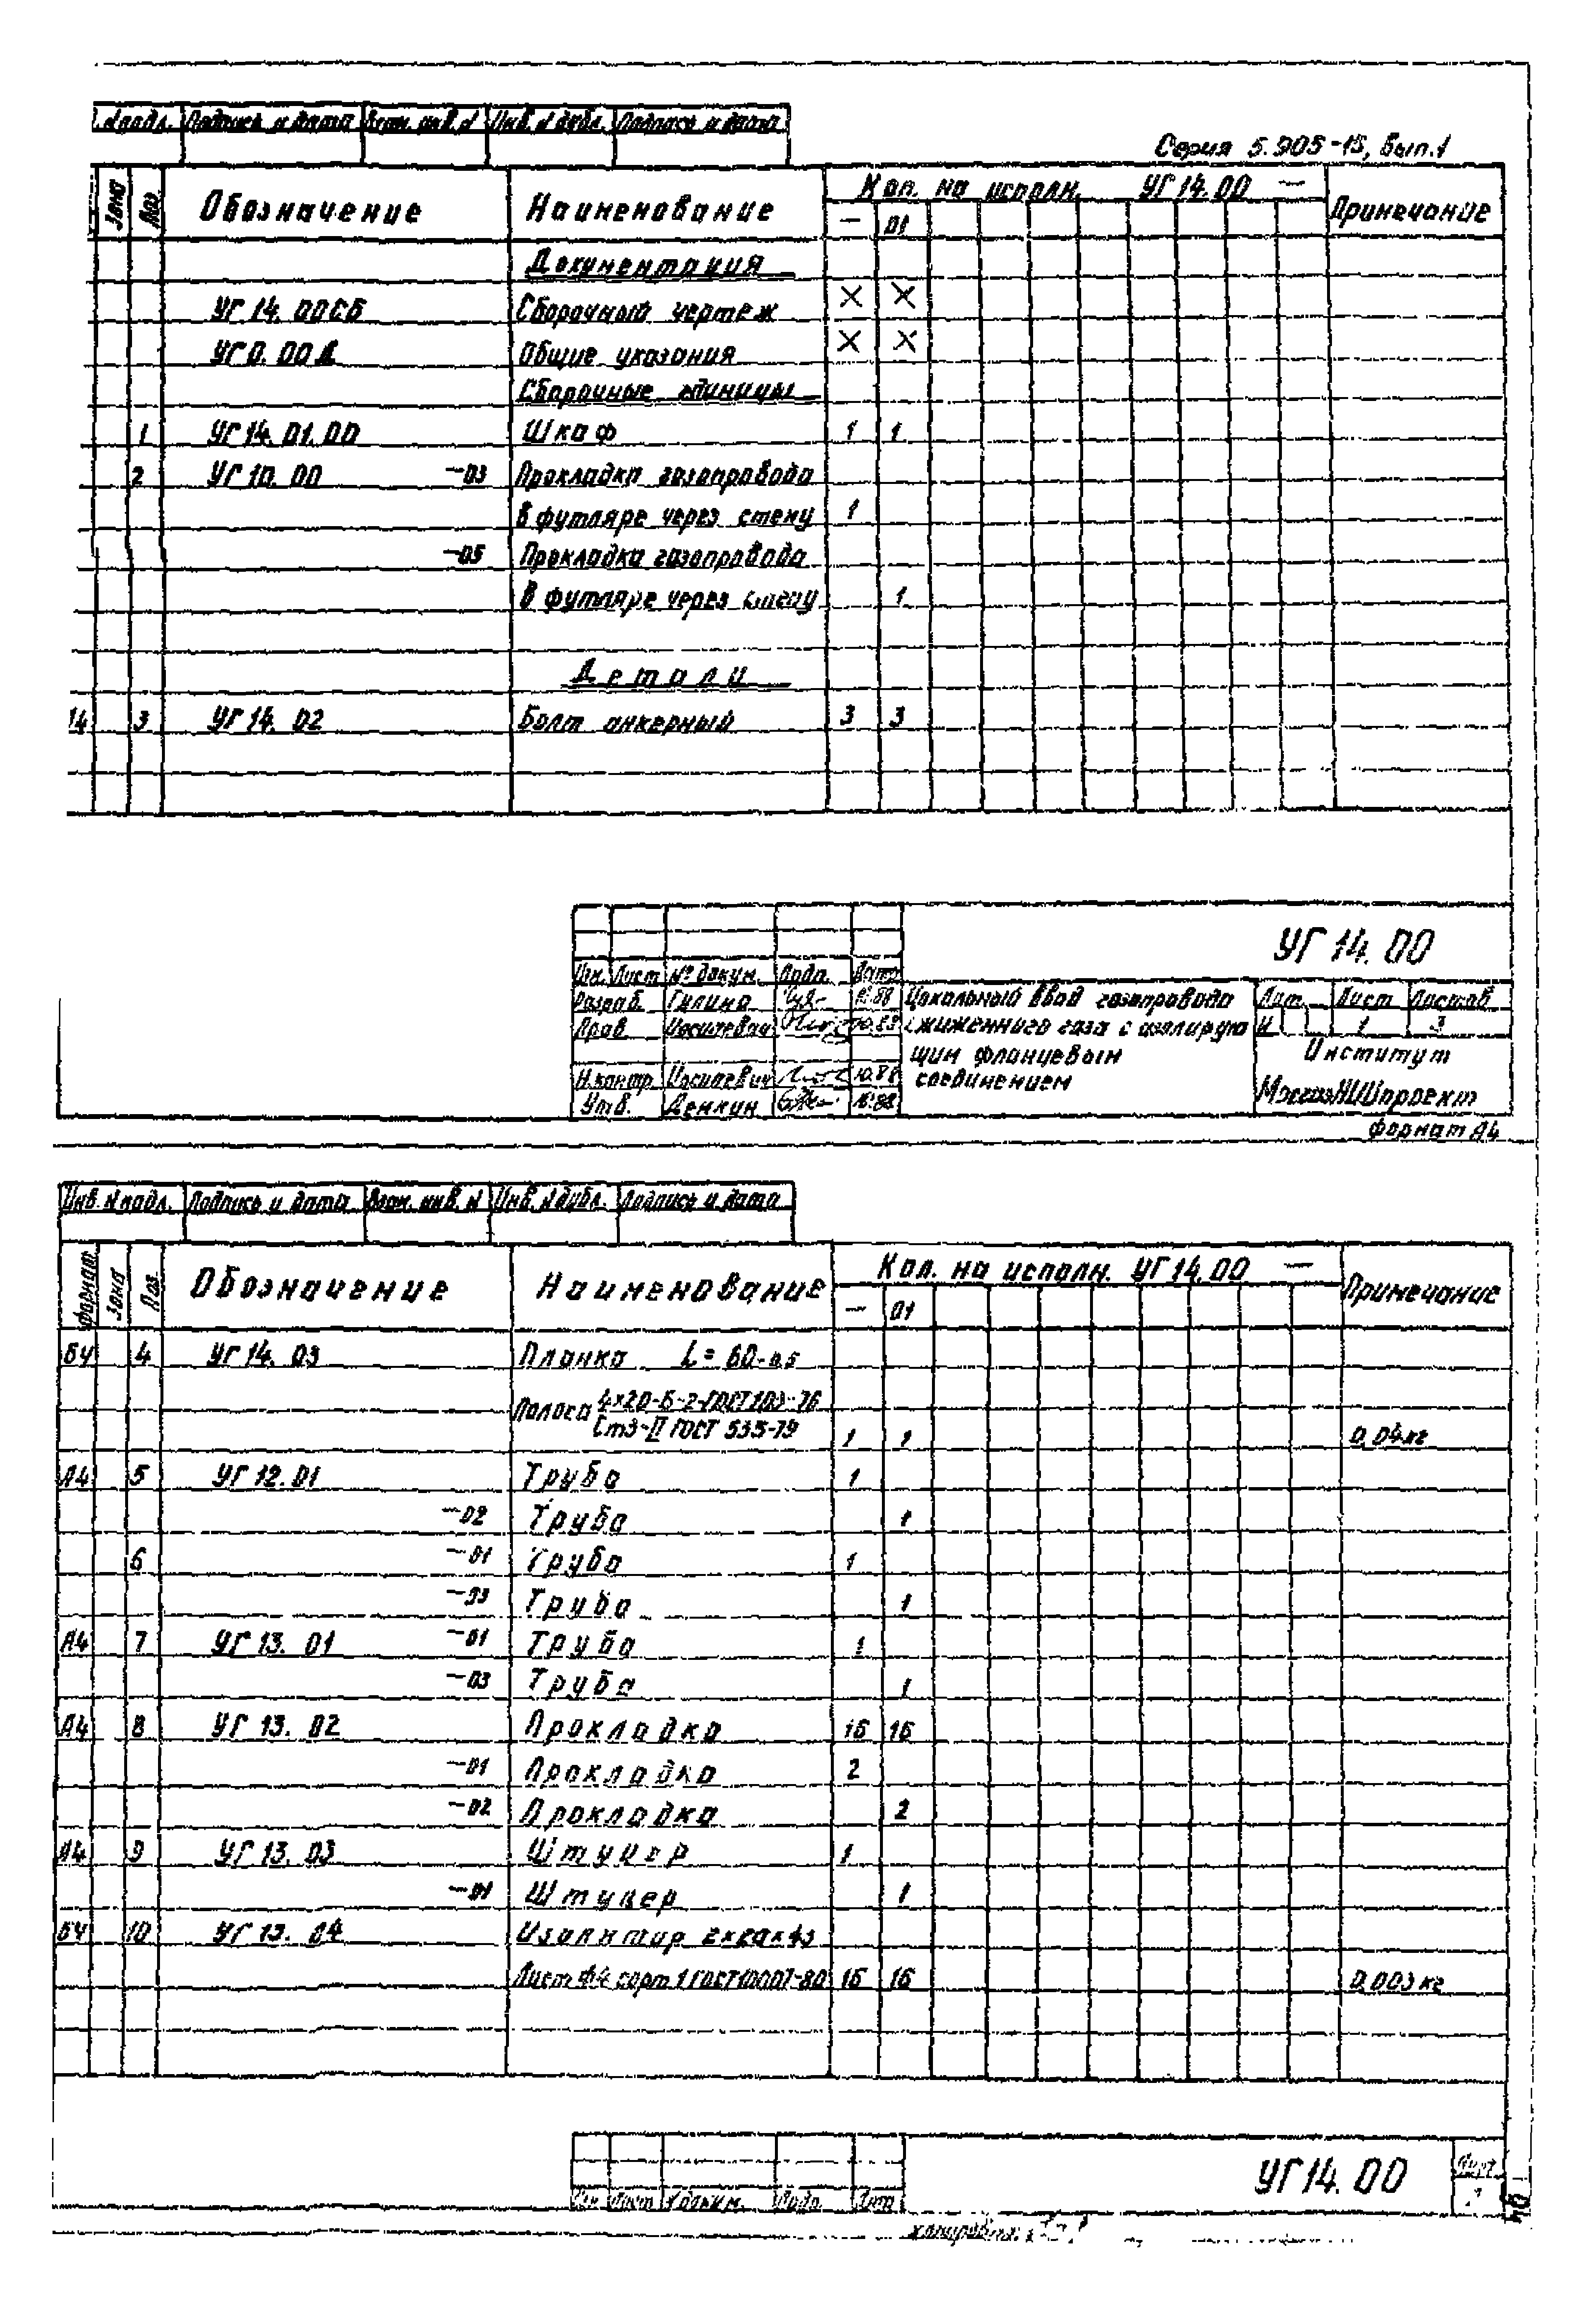 № подл. Подпись и дата Взам. инв. № Инв. № дубл. Подпись и дата
Серия 5.905-15, вып.1
Зона Поз. Обозначение Наименование Кол. на исполн. УГ 14.00 — Примечание
— 01
Документация
УГ 14.00СБ Сборочный чертеж × ×
УГ 0.00Д Общие указания × ×
Сборочные единицы
1 УГ 14.01.00 Шкаф 1 1
2 УГ 10.00 —03 Прокладка газопровода
в футляре через стену 1
—05 Прокладка газопровода
в футляре через стену 1
Детали
14 3 УГ 14.02 Болт анкерный 3 3
УГ 14.00
Изм. Лист № докум. Подп. Дата
Разраб. Гилина 10.88
Пров. 10.88
Н.контр. 10.88
Утв. Денкин 10.88
Цокольный ввод газопровода
сжиженного газа с изолирую
щим фланцевым
соединением
Лит. Лист Листов
И 1 3
Институт
МосгазНИИпроект
Формат А4
Инв. № подл. Подпись и дата Взам. инв. № Инв. № дубл. Подпись и дата
Формат Зона Поз. Обозначение Наименование Кол. на исполн. УГ 14.00 — Примечание
— 01
БЧ 4 УГ 14.03 Планка L = 60-0,5
Полоса 4×20-Б-2-ГОСТ 103-76
Ст3-II ГОСТ 535-79 1 1 0,04кг
А4 5 УГ 12.01 Труба 1
—02 Труба 1
6 —01 Труба 1
—03 Труба 1
А4 7 УГ 13.01 —01 Труба 1
—03 Труба 1
А4 8 УГ 13.02 Прокладка 16 16
—01 Прокладка 2
—02 Прокладка 2
А4 9 УГ 13.03 Штуцер 1
—01 Штуцер 1
БЧ 10 УГ 13.04
Лист Ф4 сорт 1 ГОСТ 10007-80 16 16 0,003 кг
УГ 14.00
Лист
Изм. Лист № докум. Подп. Дат
Копировал: